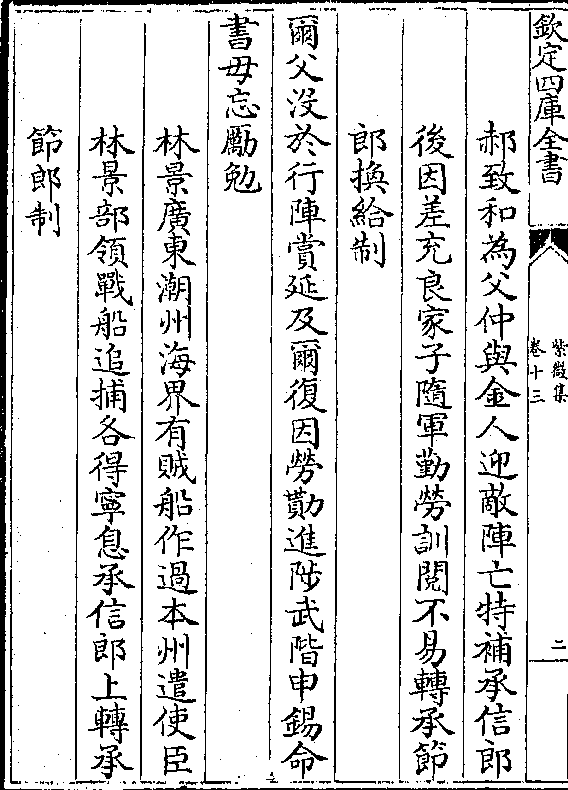 欽定四庫全書
紫微集
卷十三
二
郝致和為父仲與金人迎敵陣亡特補承信郎
後因差充良家子隨軍勤勞訓閱不易轉承節
郎換給制
爾父没於行陣賞延及爾復因勞勩進陟武階申錫命
書毋忘勵勉
林景廣東潮州海界有賊船作過本州遣使臣
林景部領戰船追捕各得寧息承信郎上轉承
節郎制